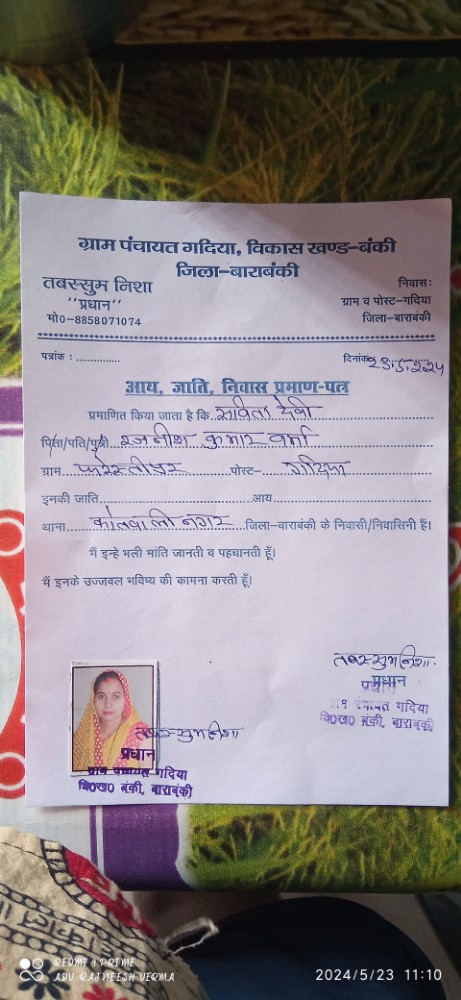 ग्राम पंचायत गदिया, विकास खण्ड-बंकी
जिला-बाराबंकी
तबस्सुम निशा
"प्रधान"
मो0-8858071074
निवास:
ग्राम व पोस्ट-गदिया
जिला-बाराबंकी
पत्रांक : ..............
दिनांक 23.5.2024
आय, जाति, निवास प्रमाण-पत्र
प्रमाणित किया जाता है कि सविता देवी
पिता/पति/पुत्री रजनीश कुमार वर्मा
ग्राम पोस्ट- गदिया
इनकी जाति आय
थाना कोतवाली नगर जिला-बाराबंकी के निवासी/निवासिनी हैं।
मैं इन्हे भली भांति जानती व पहचानती हूँ।
मैं इनके उज्जवल भविष्य की कामना करती हूँ।
तबस्सुम निशा
प्रधान
पंचायत गदिया
वि0ख0 बंकी, बाराबंकी
तबस्सुम निशा
प्रधान
ग्राम पंचायत गदिया
वि0ख0 बंकी, बाराबंकी
REDMI 9 PRIME
ADV. RAJNEESH VERMA
2024/5/23 11:10